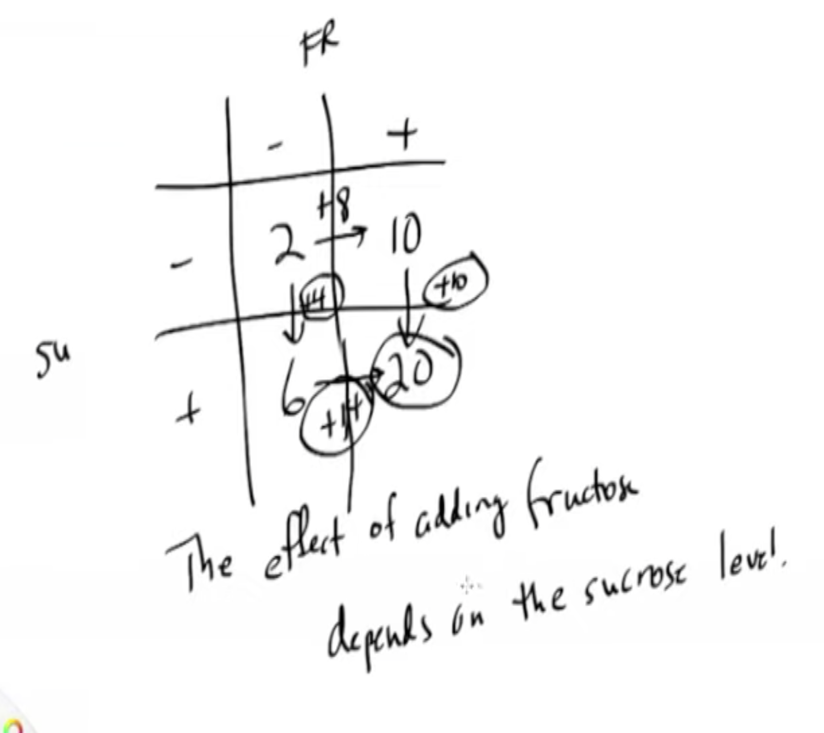 FR
- +
+8
- 2 → 10
+4 +10
su
+ 6 → 20
+14
The effect of adding fructose
depends on the sucrose level.